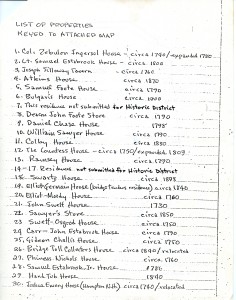 LIST OF PROPERTIES
KEYED TO ATTACHED MAP
1. Col. Zebulon Ingersol House - circa 1790/expanded 1780
2. Lt. Samuel Estabrook House - circa 1800
3. Joseph Tilloway Tavern - circa 1760
4. Atkins House - circa 1870
5. Samuel Foote House circa 1790
6. House circa 1800
7. This residence not submitted for Historic District
8. Deacon John Foote Store circa 1790
9. Daniel Chase House 1795
10. William Sawyer House circa 1790
11. Colby House circa 1850
12. The Countess House - circa 1750/expanded 1809
13. Ramsey House circa 1790
14-17 Residences not submitted for Historic District
18. Swartz House circa 1895
19. Elliot Garmin House circa 1840
20. Elliot-Moody House circa 1760
21. John Swett House 1730
22. Sawyer's Store circa 1850
23. Swett-Osgood House circa 1750
24. Carr-John Estabrook House circa 1790
25. Gideon Challis House circa 1750
26. Bridge Toll Collectors House circa 1840/relocated
27. Phineas Nichols House circa 1760
28. Samuel Estabrook, Jr. House 1786
29. Hand Tub House 1840
30. House circa 1760/relocated